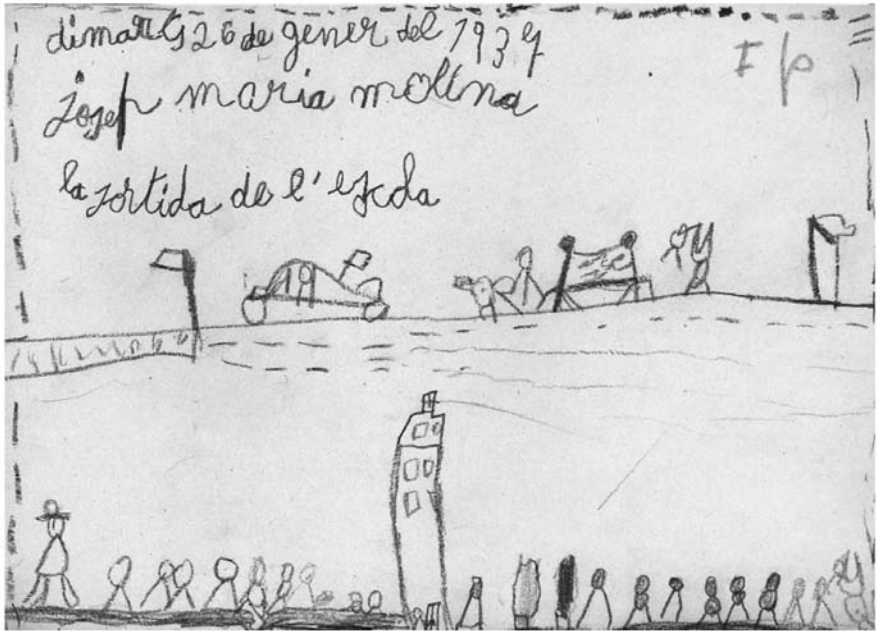 dimarts 26 de gener del 1937
josep maria molina
la sortida de l'escola